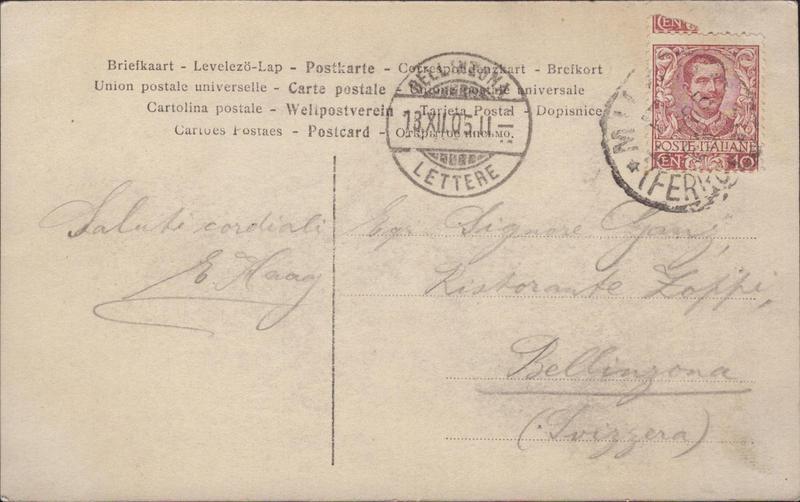 Briefkaart - Levelezö-Lap - Postkarte - Correspondenzkart - Brefkort
Union postale universelle - Carte postale - Unione postale universale
Cartolina postale - Weltpostverein - Tarjeta Postal - Dopisnice
Cartoes Postaes - Postcard - Открытое письмо.
BELLINZONA
13.XII.05.11
LETTERE
POSTE ITALIANE
CENT 10
(FERR
Saluti cordiali
E Haag
Egr. Signore
Ristorante Zoppi,
Bellinzona
(Svizzera)